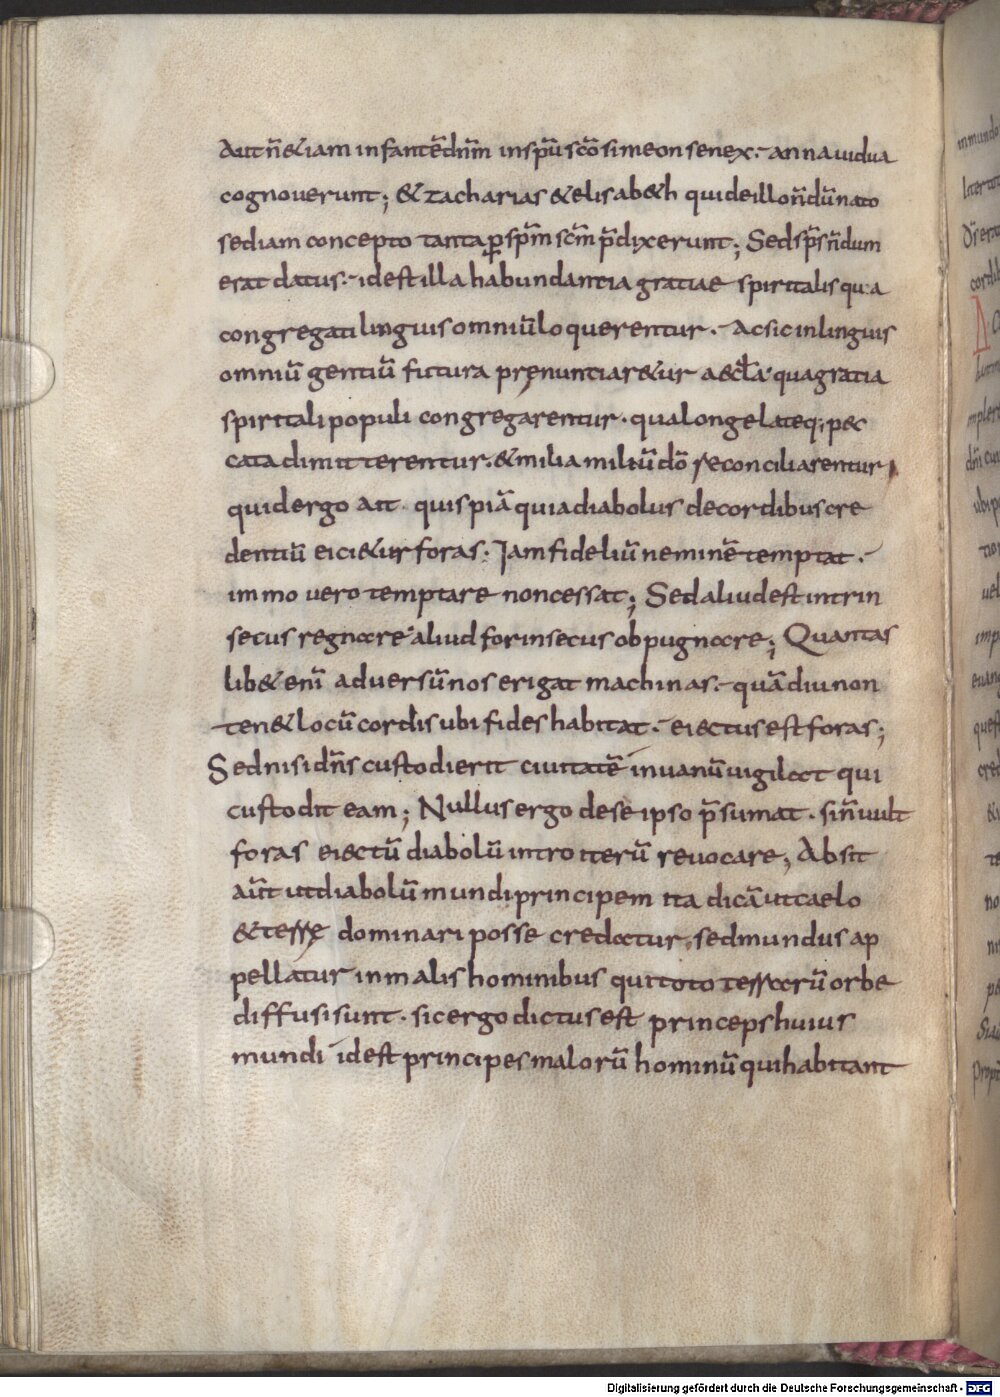 Aut n̄ &iam infantē dn̄m in spū scō simeon senex. anna uidua
cognouerunt; & zacharias & elisab&h qui de illo n̄dū nato
sed iam concepto tanta ꝑ spm̄ scm̄ p̄dixerunt; Sed sp̄s n̄dum
erat datus. idest illa habundantia gratiae spiritalis qua
congregati linguis omniū loquerentur. Ac sic in linguis
omniū gentiū futura prenuntiar&ur aeccl̄a qua gratia
spiritali populi congregarentur. qua longe lateq; pec
cata dimitterentur. & milia miliū dō reconciliarentur
quid ergo ait quispiā quia diabolus de cordibus cre
dentiū eici&ur foras. Iam fideliū neminē temptat.
immo uero temptare non cessat; Sed aliud est intrin
secus regnare aliud forinsecus obpugnare; Quantas
lib& enī aduersū nos erigat machinas. quādiu non
ten& locū cordis ubi fides habitat. eiectus est foras;
Sed nisi dn̄s custodierit ciuitatē in uanū uigilat qui
custodit eam; Nullus ergo de se ipso p̄sumat. si n̄ uult
foras eiectū diabolū intro iterū reuocare; Absit
aūt ut diabolū mundi principem ita dicā ut caelo
& terre dominari posse credatur. sed mundus ap
pellatur in malis hominibus qui toto terrarū orbe
diffusi sunt. sic ergo dictus est princeps huius
mundi idest principes malorū hominū qui habitant
Digitalisierung gefördert durch die Deutsche Forschungsgemeinschaft - DFG